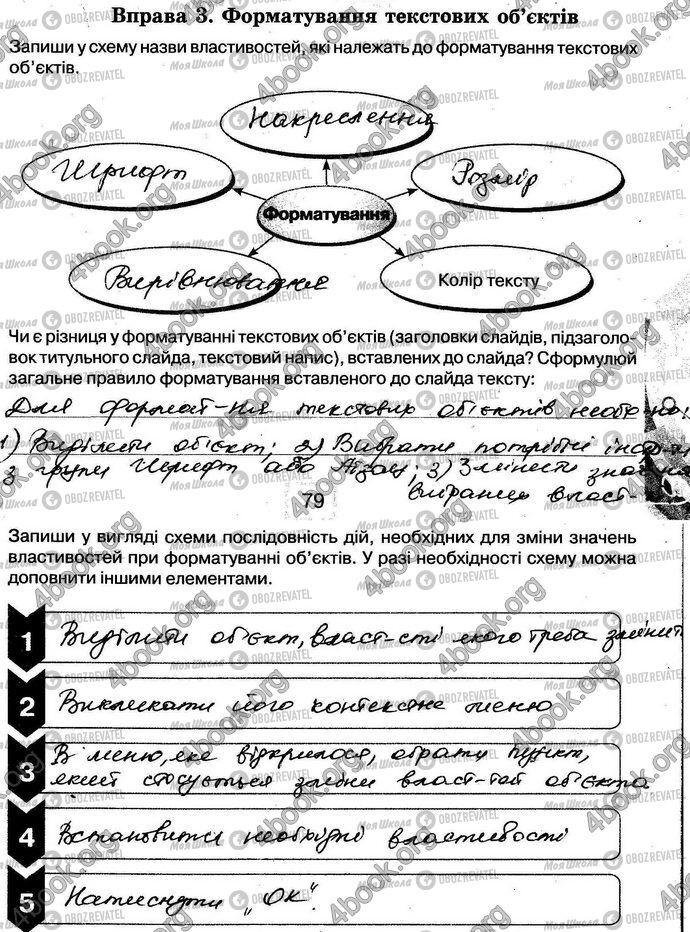 Вправа 3. Форматування текстових об’єктів
Запиши у схему назви властивостей, які належать до форматування текстових
об’єктів.
Накреслення
Шрифт
Розмір
Форматування
Вирівнювання
Колір тексту
Чи є різниця у форматуванні текстових об’єктів (заголовки слайдів, підзаголо-
вок титульного слайда, текстовий напис), вставлених до слайда? Сформулюй
загальне правило форматування вставленого до слайда тексту:
Для формат-ня текстових об'єктів необхідно:
1) Виділити об'єкт; 2) Вибрати потрібні
з групи Шрифт або Абзац; 3) Змінити
вибраних власт-
79
Запиши у вигляді схеми послідовність дій, необхідних для зміни значень
властивостей при форматуванні об’єктів. У разі необхідності схему можна
доповнити іншими елементами.
1 Виділити об'єкт, власт-сті якого треба змінити
2 Викликати його контекстне меню
3 В меню, яке відкрилося, обрати пункт,
який стосується зміни власт-тей об'єкта
4 Встановити необхідні властивості
5 Натиснути „ОК“.
4book.org
МояШкола OBOZREVATEL